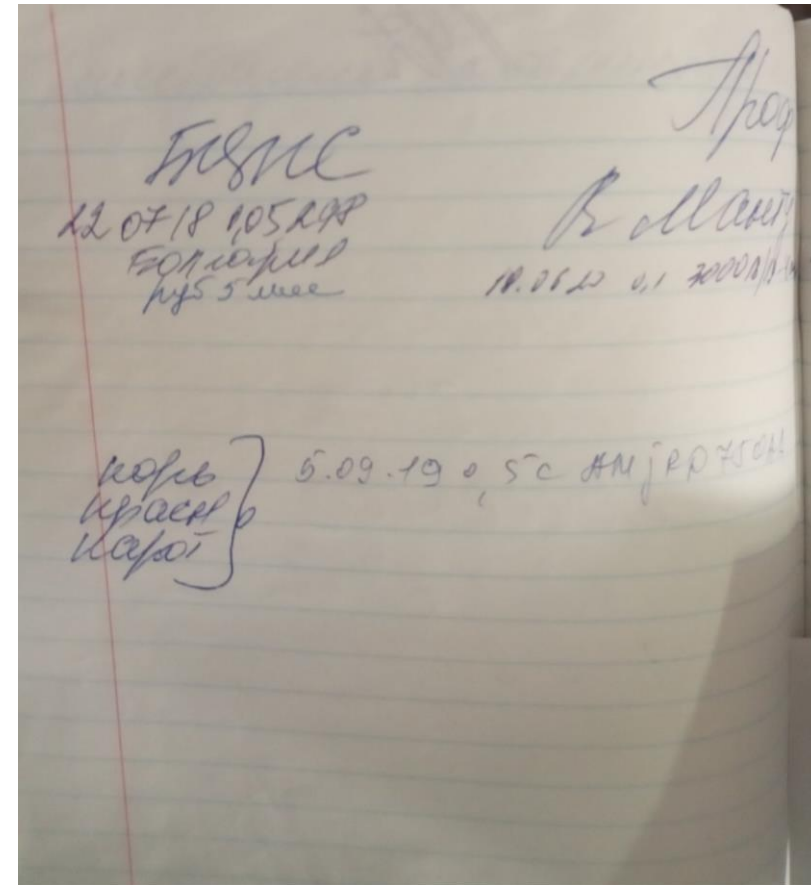 БЦЖ
22 07 18 0,05 298
Болгария
руб 5 мм
Проф
R Манту
10.06.20 0,1 3000
корь
красн
парот
5.09.19 0,5 с AMJRD750